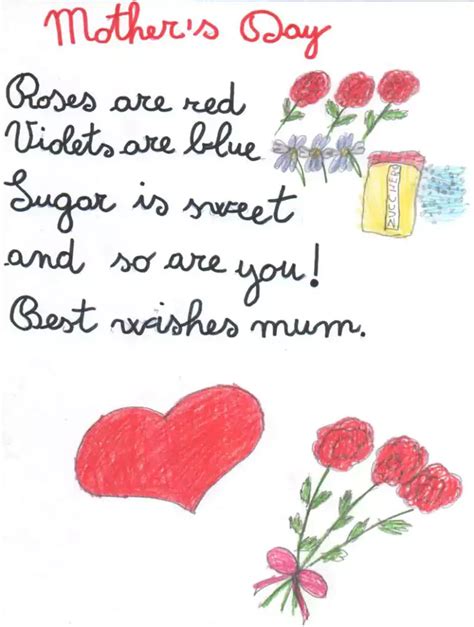 Mother's Day
Roses are red
Violets are blue
Sugar is sweet
and so are you!
Best wishes mum.
ZUCCHERO